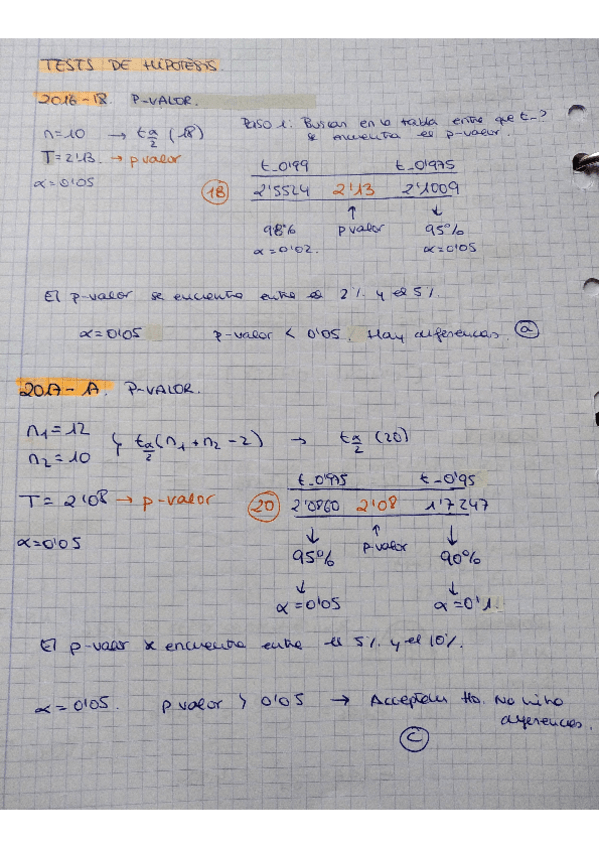 TESTS DE HIPÓTESIS.
2016-18. P-VALOR.
n=10 → t α/2 (18)
Paso 1: Buscar en la tabla entre que t_?
se encuentra el p-valor.
T=2'13. → p valor
α=0'05
t_0'99 t_0'975
18 2'5524 2'13 2'1009
↑ ↓
98% p valor 95%
α=0'02. α=0'05
El p-valor se encuentra entre el 2% y el 5%.
α=0'05 p-valor < 0'05. Hay diferencias. a
2017-A. P-VALOR.
n1=12
n2=10
} t α/2 (n1+n2-2) → t α/2 (20)
t_0'975 t_0'95
T=2'08 → p-valor 20 2'0860 2'08 1'7247
↓ ↑ ↓
α=0'05 95% p-valor 90%
↓ ↓
α=0'05 α=0'1.
El p-valor se encuentra entre el 5% y el 10%.
α=0'05. p valor > 0'05 → Ho. No
diferencias.
C